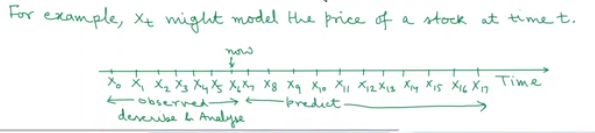 For example, Xt might model the price of a stock at time t.
now
X0 X1 X2 X3 X4 X5 X6 X7 X8 X9 X10 X11 X12 X13 X14 X15 X16 X17 Time
observed predict
describe & Analyse